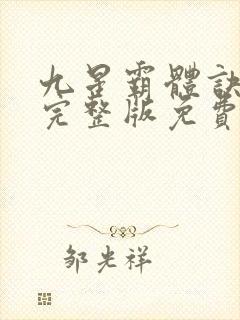 九星霸體訣
完整版免費
邹光祥